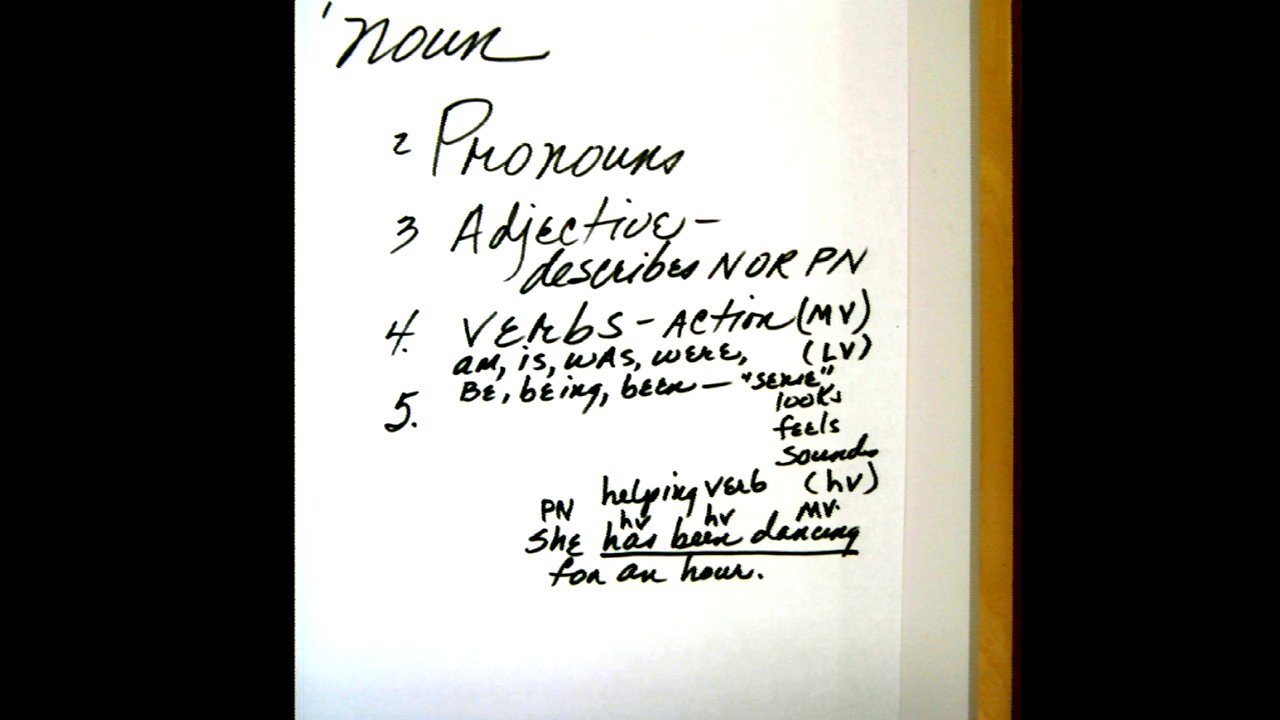 1 Noun
2 Pronouns
3 Adjective -
describes N OR PN
4. VERBS - Action (MV)
am, is, was, were, (LV)
BE, being, been — "sense"
looks
5. feels
sounds
helping verb (hv)
PN hv hv MV.
She has been dancing
for an hour.